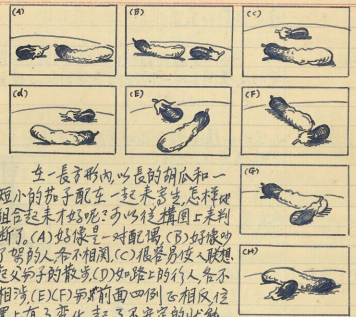 (A)
(B)
(C)
(d)
(E)
(F)
(G)
(H)
在一長方形內,以長的胡瓜和一
短小的茄子配在一起来寫生,怎樣地
組合起来才好呢?可以從構圖上来判
斷了。(A)好像是一对配偶,(B)好像吵
了架的人各不相関,(C)很容易使人联想
起父与子的散步(D)如路上的行人各不
相涉,(E)(F)与前面四例正相反位
置上有了变化,起了不安定的狀態